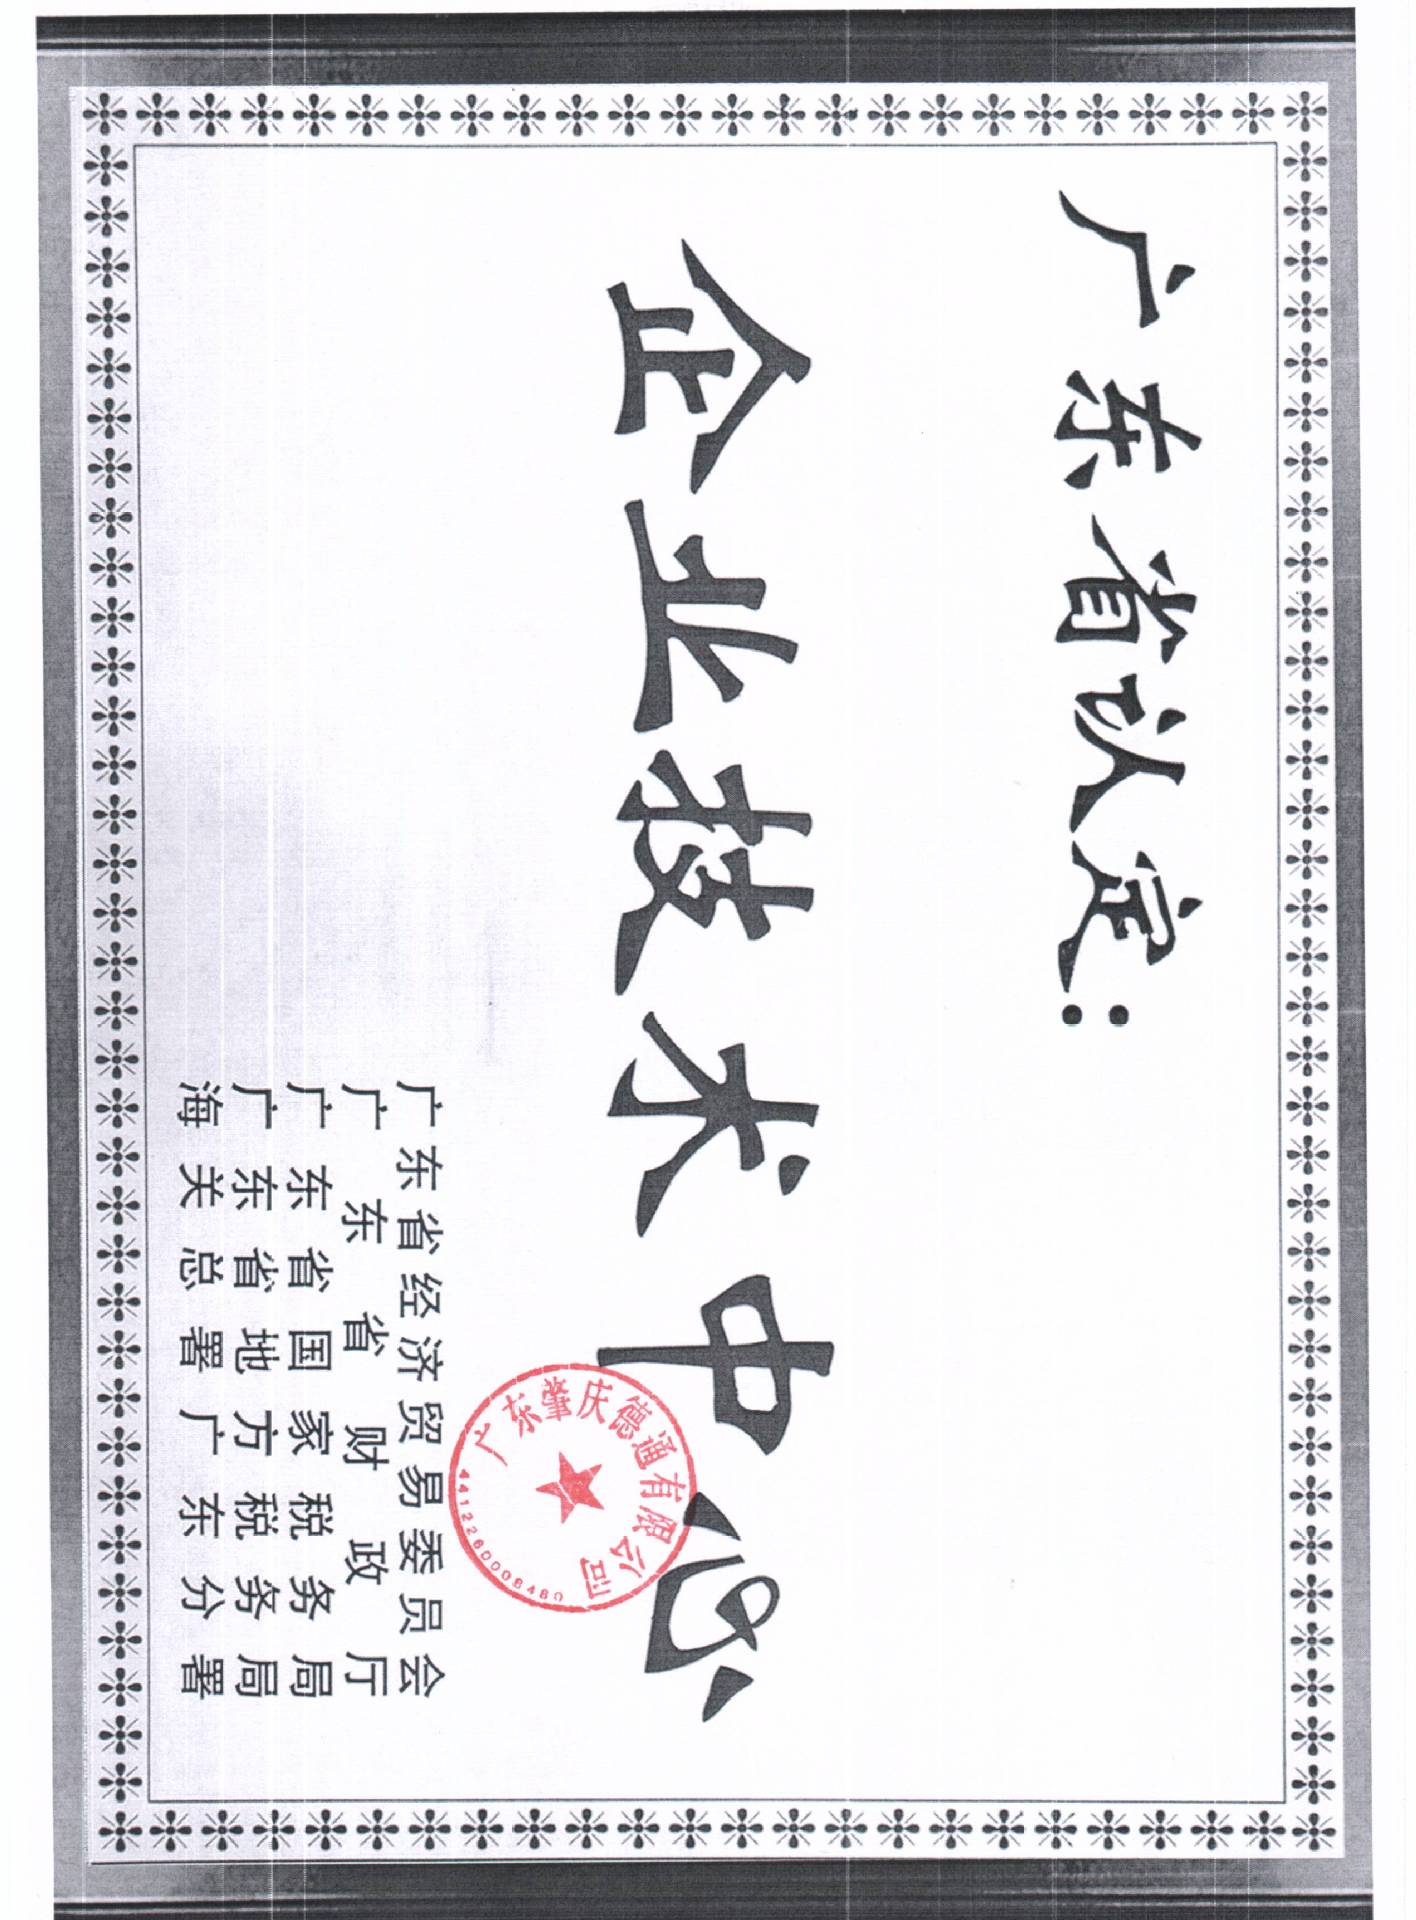 广东省认定：
企业技术中心
广东省经济贸易委员会
广东省财政厅
广东省国家税务局
广东省地方税务局
海关总署广东分署
广东肇庆德通有限公司
4412260008480